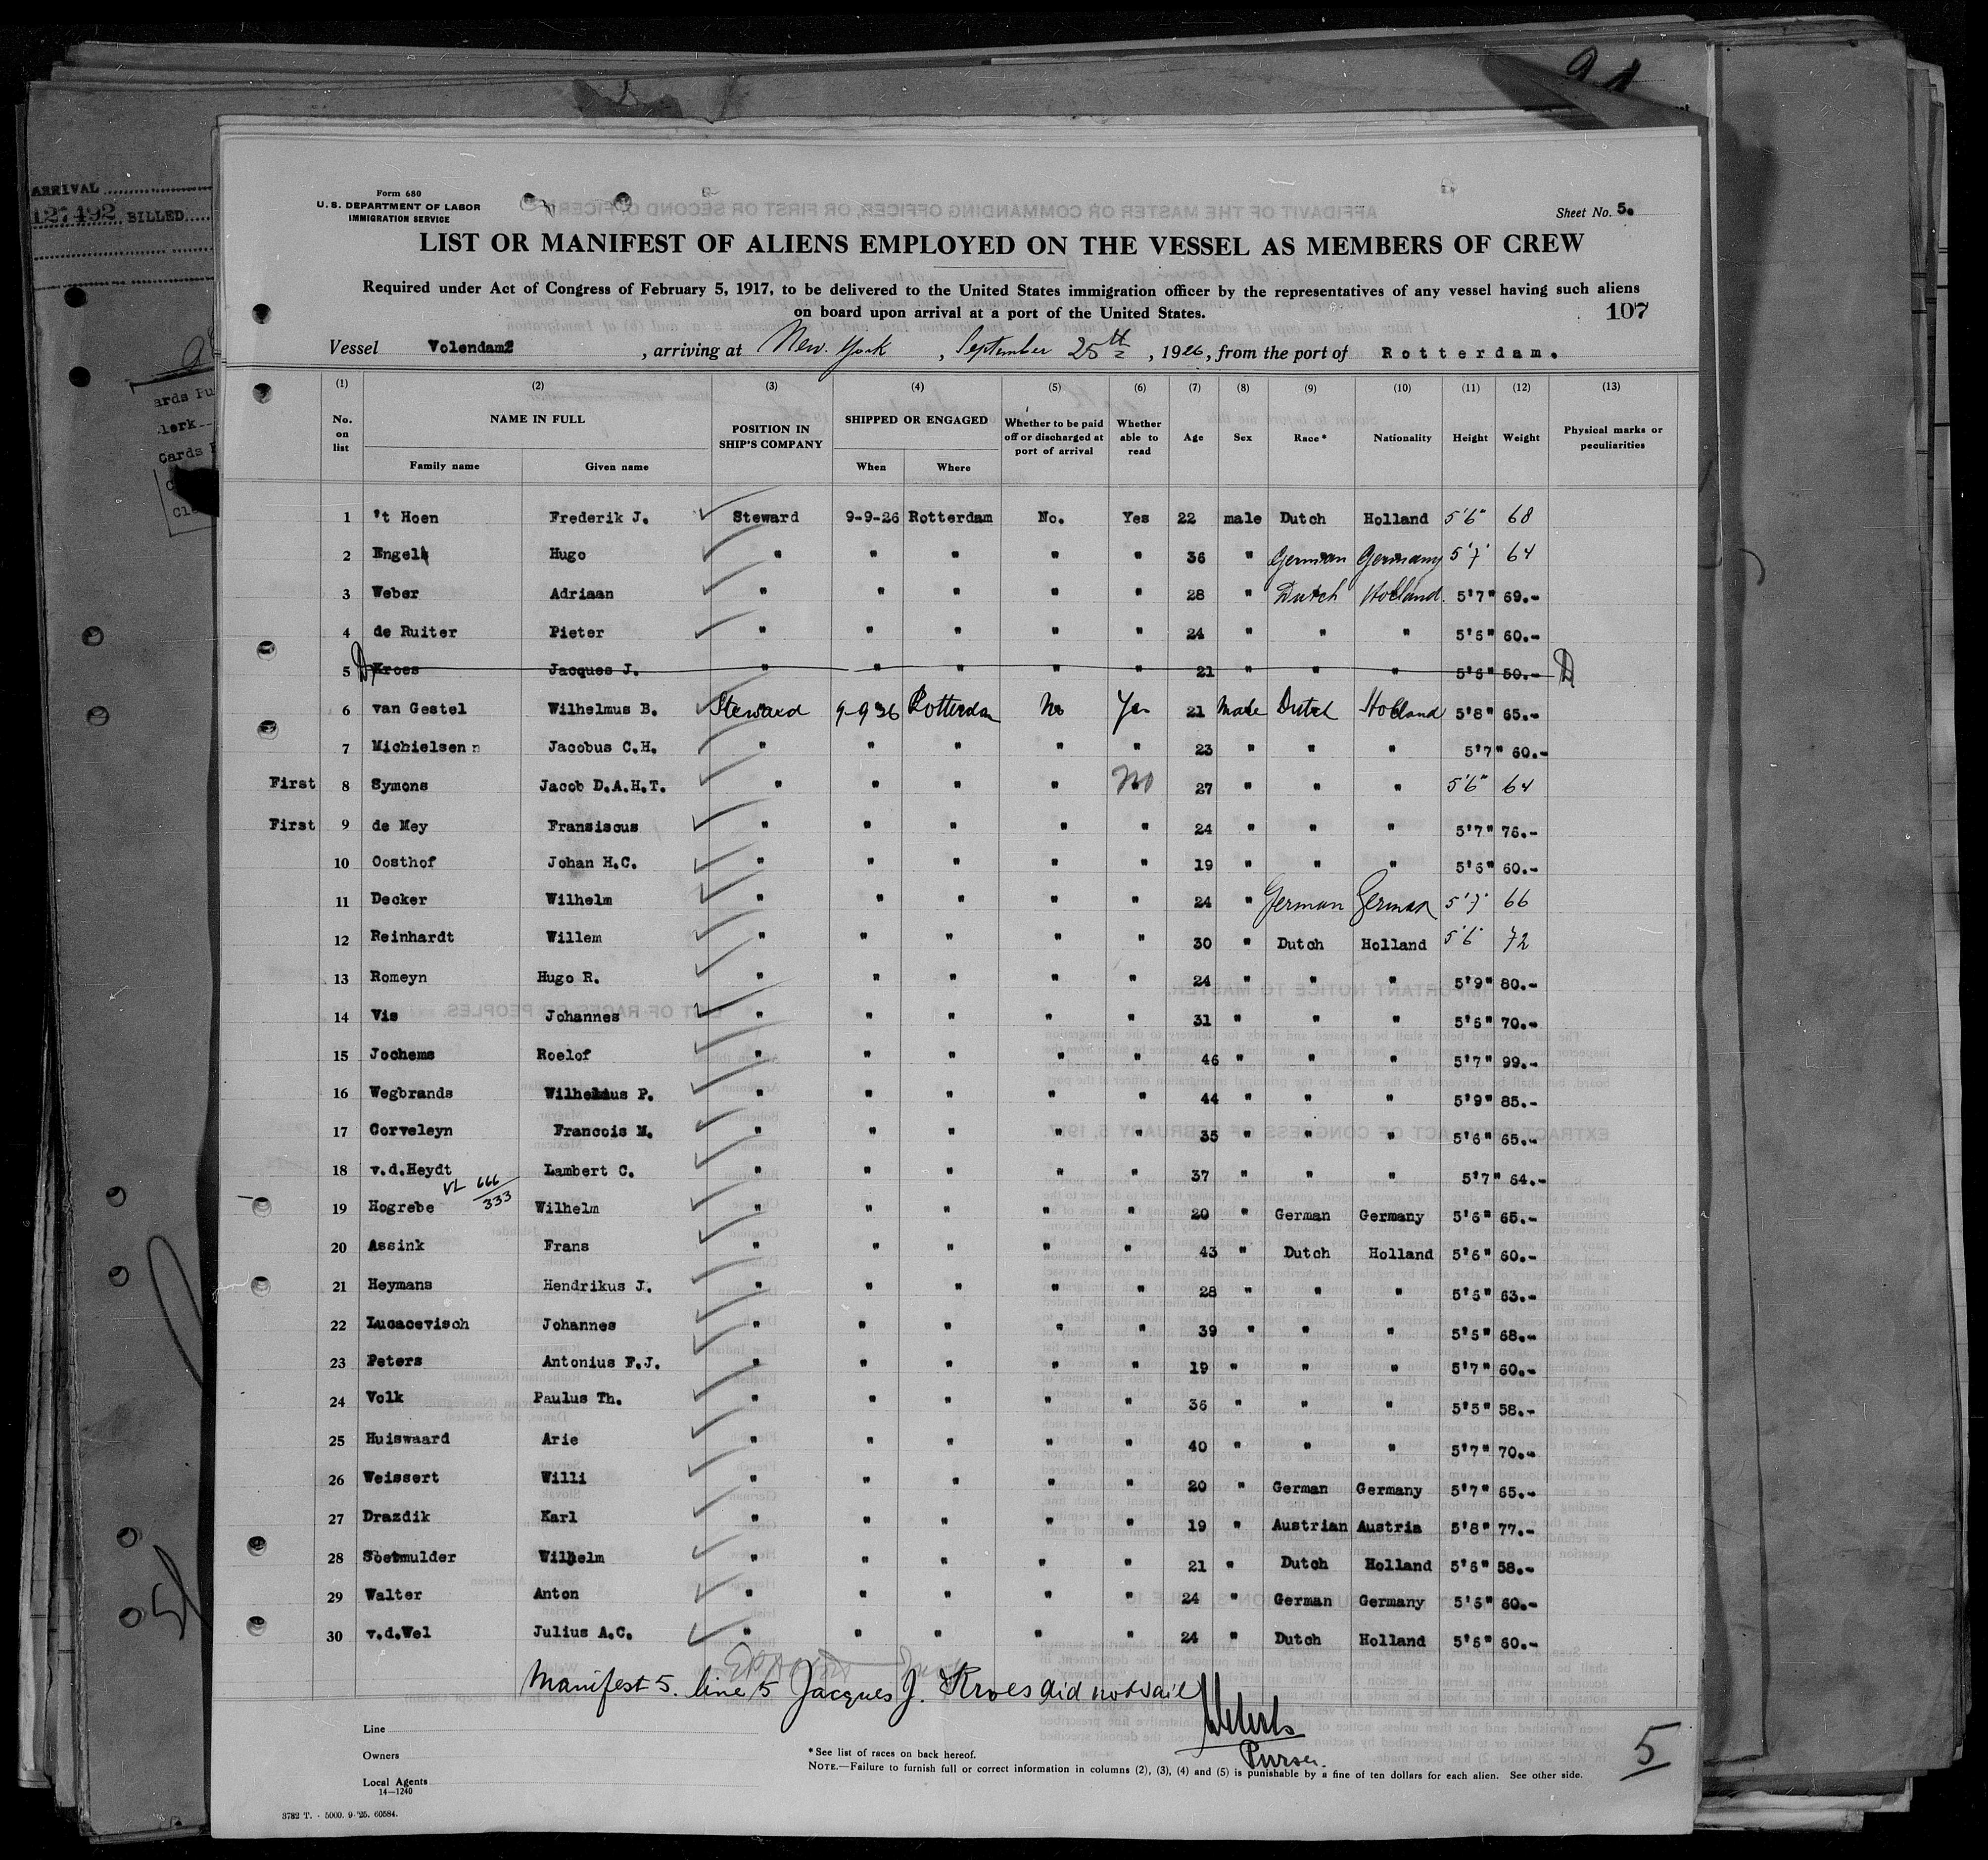 ARRIVAL
127492 BILLED
Form 680
U.S. DEPARTMENT OF LABOR
IMMIGRATION SERVICE
Sheet No. 5.
LIST OR MANIFEST OF ALIENS EMPLOYED ON THE VESSEL AS MEMBERS OF CREW
Required under Act of Congress of February 5, 1917, to be delivered to the United States immigration officer by the representatives of any vessel having such aliens
on board upon arrival at a port of the United States.
107
Vessel Volendam , arriving at New York , September 25th , 1926, from the port of Rotterdam.
(1) (2) (3) (4) (5) (6) (7) (8) (9) (10) (11) (12) (13)
No. on list NAME IN FULL Family name Given name POSITION IN SHIP'S COMPANY SHIPPED OR ENGAGED When Where Whether to be paid off or discharged at port of arrival Whether able to read Age Sex Race* Nationality Height Weight Physical marks or peculiarities
1 't Hoen Frederik J. Steward 9-9-26 Rotterdam No. Yes 22 male Dutch Holland 5'6" 68
2 Engel Hugo " " " " " 36 " German Germany 5'7" 64
3 Weber Adriaan " " " " " 28 " Dutch Holland. 5'7" 69.-
4 de Ruiter Pieter " " " " " 24 " " " 5'6" 60.-
5 Kroes Jacques J. " " " " " 21 " " " 5'6" 50.-
6 van Gestel Wilhelmus B. Steward 9-9 26 Rotterdam No Yes 21 Male Dutch Holland 5'8" 65.-
7 Michielsen n Jacobus C.H. " " " " " 23 " " " 5'7" 60.-
First 8 Symons Jacob D.A.H.T. " " " " No 27 " " " 5'6" 64
First 9 de Mey Fransiscus " " " " " 24 " " " 5'7" 76.-
10 Oosthof Johan H.C. " " " " " 19 " " " 5'6" 60.-
11 Decker Wilhelm " " " " " 24 " German German 5'7" 66
12 Reinhardt Willem " " " " " 30 " Dutch Holland 5'6" 72
13 Romeyn Hugo R. " " " " " 24 " " " 5'9" 80.-
14 Vis Johannes " " " " " 31 " " " 5'6" 70.-
15 Jochems Roelof " " " " " 46 " " " 5'7" 99.-
16 Wegbrands Wilhelmus P. " " " " " 44 " " " 5'9" 85.-
17 Corveleyn Francois M. " " " " " 35 " " " 5'6" 65.-
18 v.d.Heydt Lambert C. " " " " " 37 " " " 5'7" 64.-
VL 666/333
19 Hogrebe Wilhelm " " " " " 20 " German Germany 5'6" 65.-
20 Assink Frans " " " " " 43 " Dutch Holland 5'6" 60.-
21 Heymans Hendrikus J. " " " " " 28 " " " 5'6" 63.-
22 Lucacevisch Johannes " " " " " 39 " " " 5'5" 68.-
23 Peters Antonius F.J. " " " " " 19 " " " 5'7" 60.-
24 Volk Paulus Th. " " " " " 36 " " " 5'5" 58.-
25 Huiswaard Arie " " " " " 40 " " " 5'7" 70.-
26 Weissert Willi " " " " " 20 " German Germany 5'7" 65.-
27 Drazdik Karl " " " " " 19 " Austrian Austria 5'8" 77.-
28 Soetmulder Wilhelm " " " " " 21 " Dutch Holland 5'6" 58.-
29 Walter Anton " " " " " 24 " German Germany 5'6" 60.-
30 v.d.Wel Julius A.C. " " " " " 24 " Dutch Holland 5'6" 60.-
Manifest 5. line 5 Jacques J. Kroes did not sail
Purser.
5
Line
Owners
Local Agents
14—1240
*See list of races on back hereof.
NOTE.—Failure to furnish full or correct information in columns (2), (3), (4) and (5) is punishable by a fine of ten dollars for each alien. See other side.
3782 T. - 5000. 9-'25. 60584.